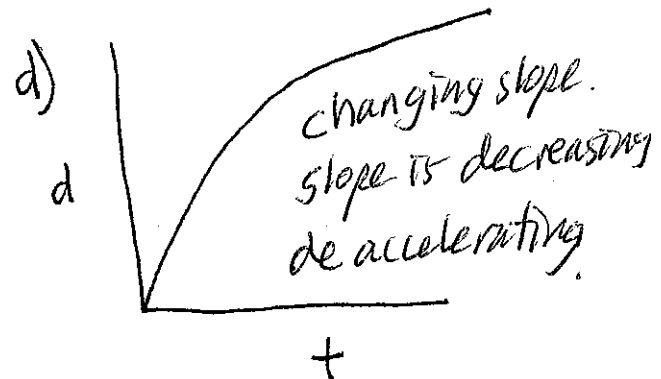 d)
d
changing slope.
slope is decreasing
de accelerating.
t